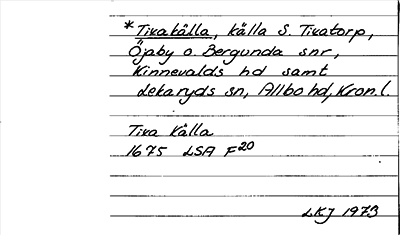 *Tivakälla, källa S. Tivatorp,
Öjaby o. Bergunda snr,
Kinnevalds hd samt
Lekaryds sn, Allbo hd, Kron.l.
Tiva Källa
1675 LSA F20
LKJ 1973